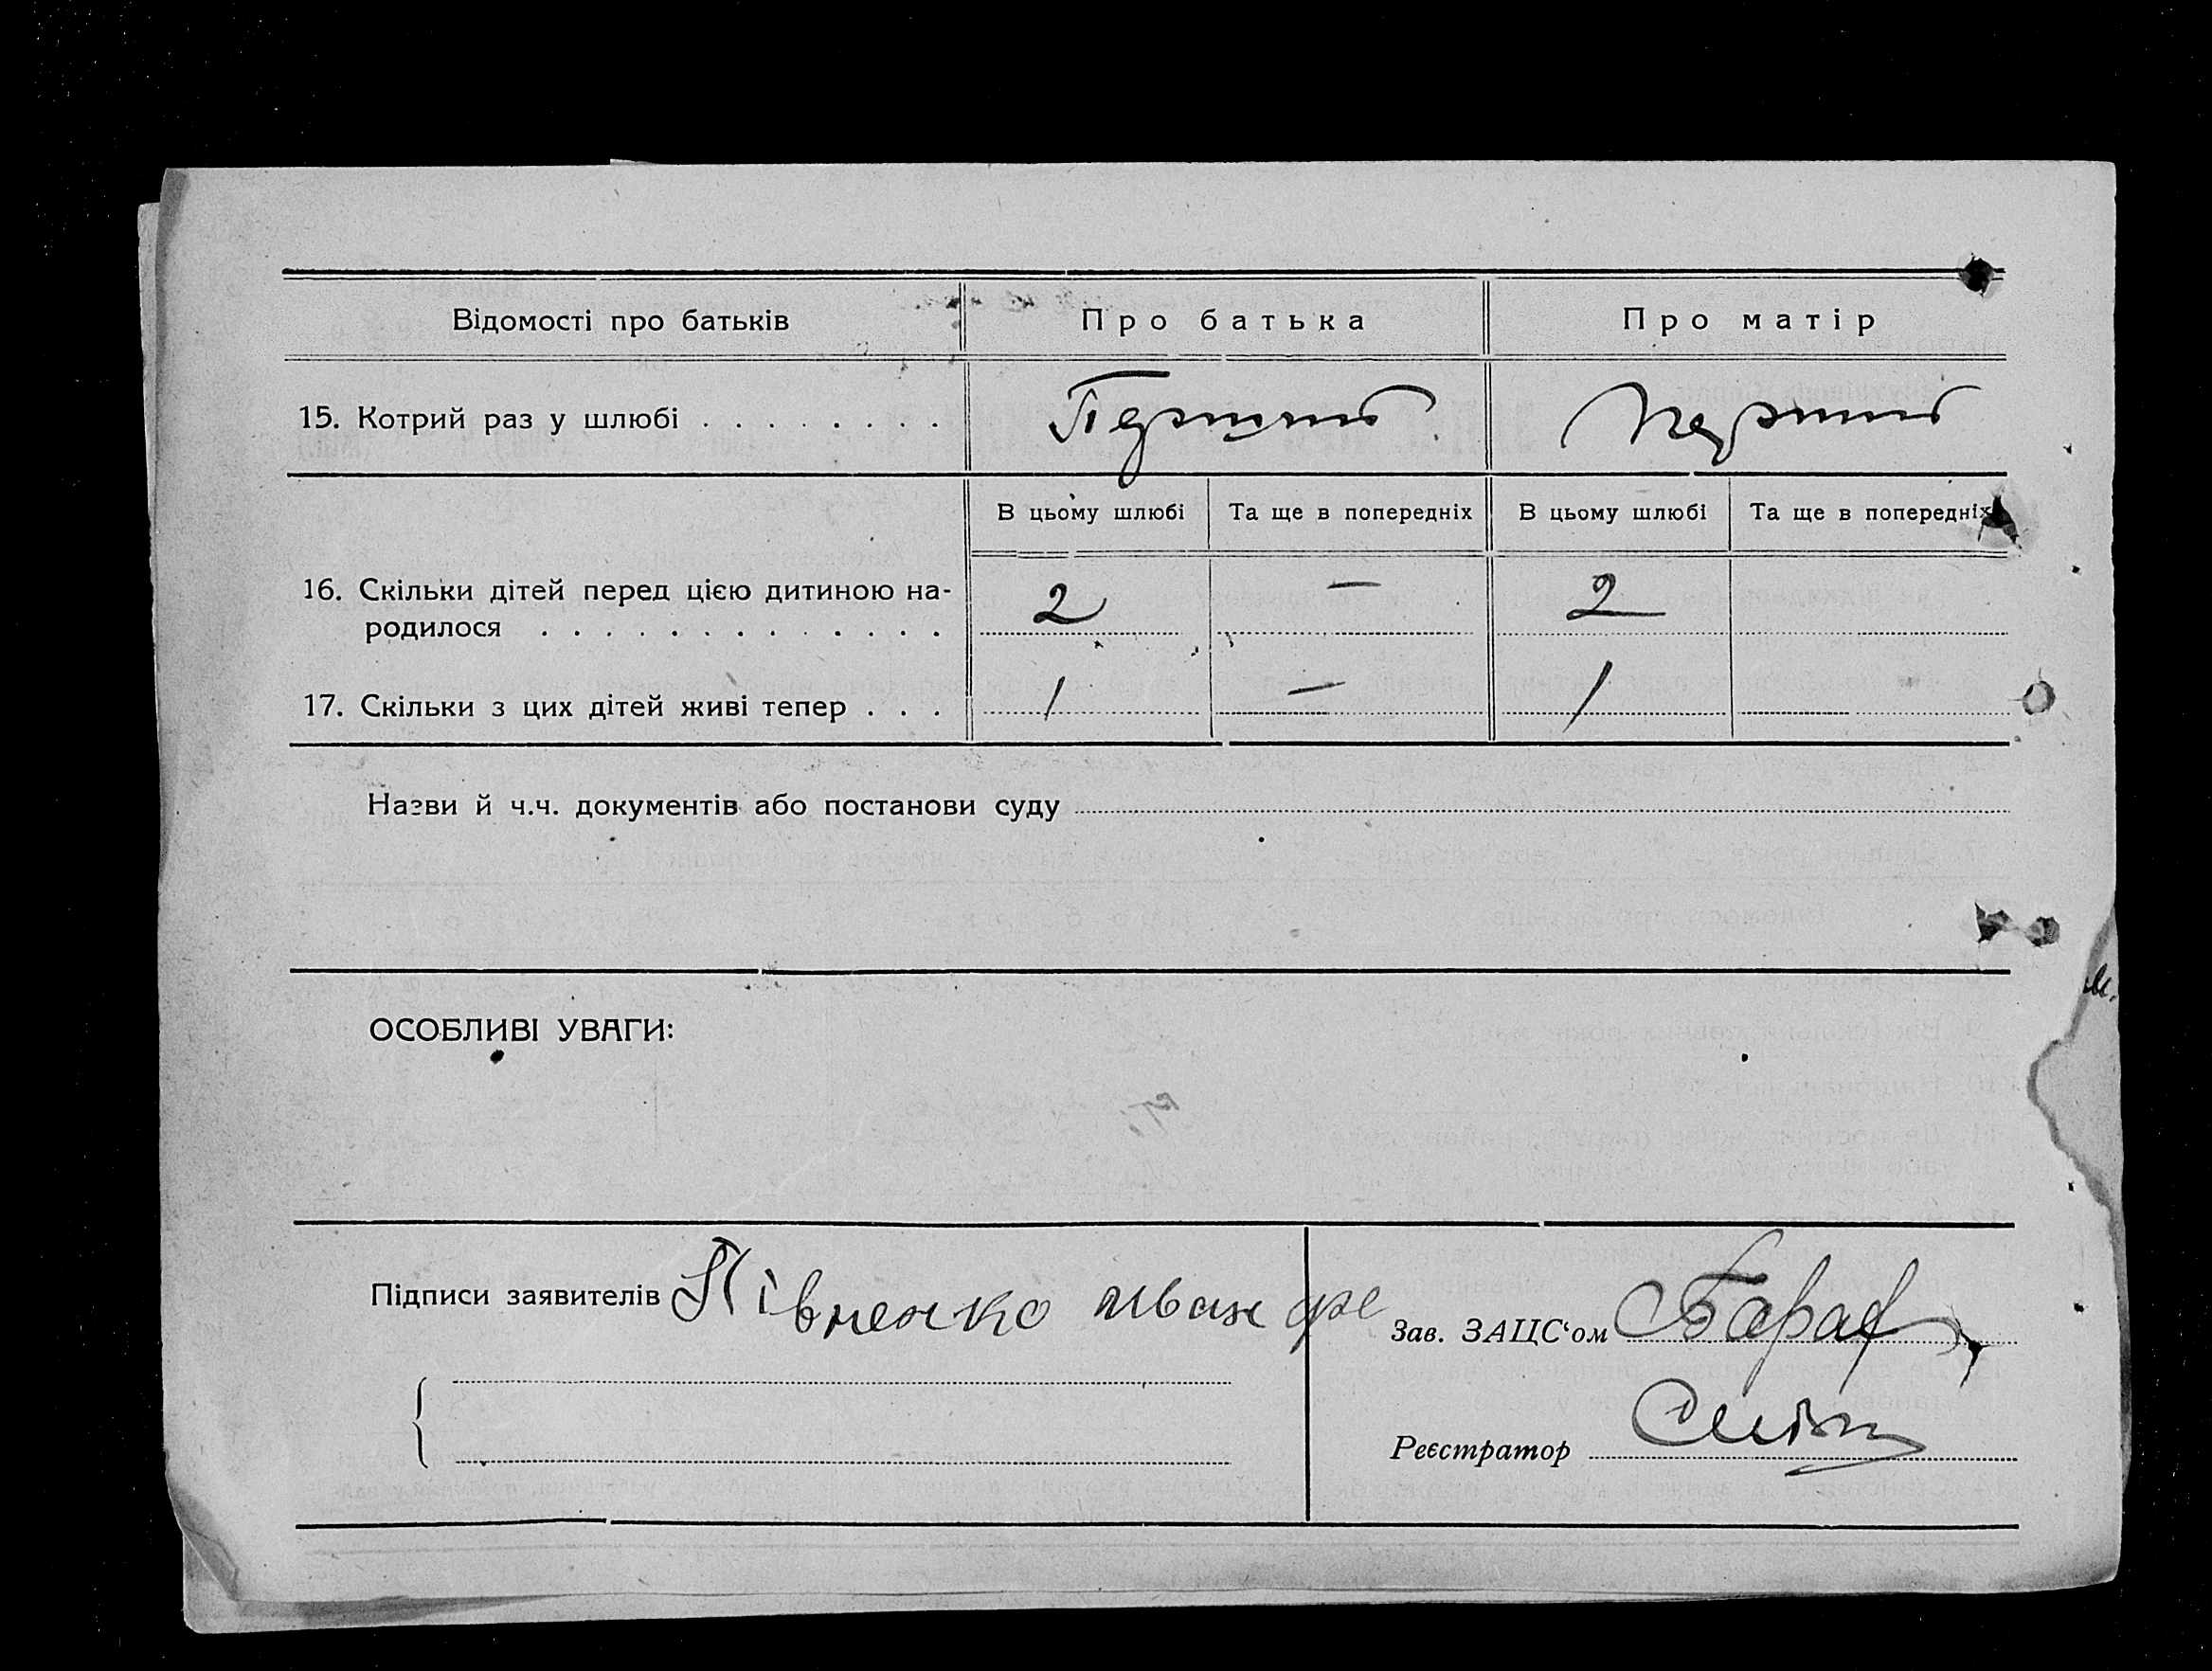 Відомості про батьків Про батька Про матір
15. Котрий раз у шлюбі . . . . . . . . Перший Перший
В цьому шлюбі Та ще в попередніх В цьому шлюбі Та ще в попередніх
16. Скільки дітей перед цією дитиною на- 2 — 2
родилося . . . . . . . . . . . . .
17. Скільки з цих дітей живі тепер . . . 1 — 1
Назви й ч.ч. документів або постанови суду
ОСОБЛИВІ УВАГИ:
Підписи заявителів Півненко иван
Зав. ЗАЦС‘ом
Реєстратор